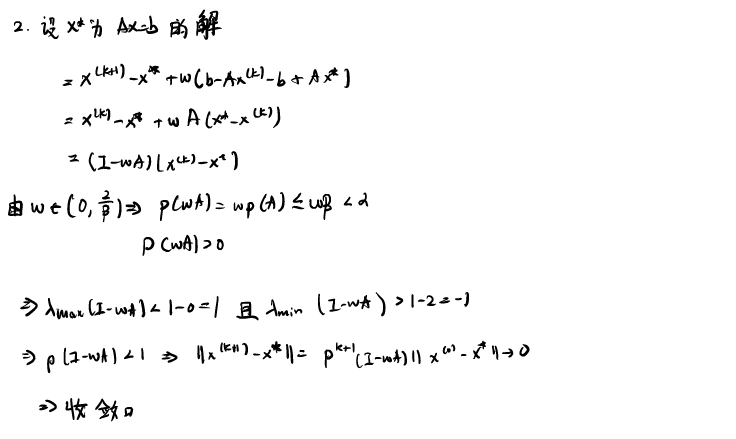 2. 设 x* 为 Ax=b 的解
= x^(k+1) - x* + w(b-Ax^(k)-b+Ax*)
= x^(k) - x* + wA(x*-x^(k))
= (I-wA)(x^(k)-x*)
由 w∈(0, 2/β) ⇒ ρ(wA)=wρ(A)≤wβ<2
ρ(wA)>0
⇒ λmax(I-wA)<1-0=1 且 λmin (I-wA)>1-2=-1
⇒ ρ(I-wA)<1 ⇒ ||x^(k+1)-x*||= ρ^k+1(I-wA)||x^(0)-x*||→0
⇒ 收敛